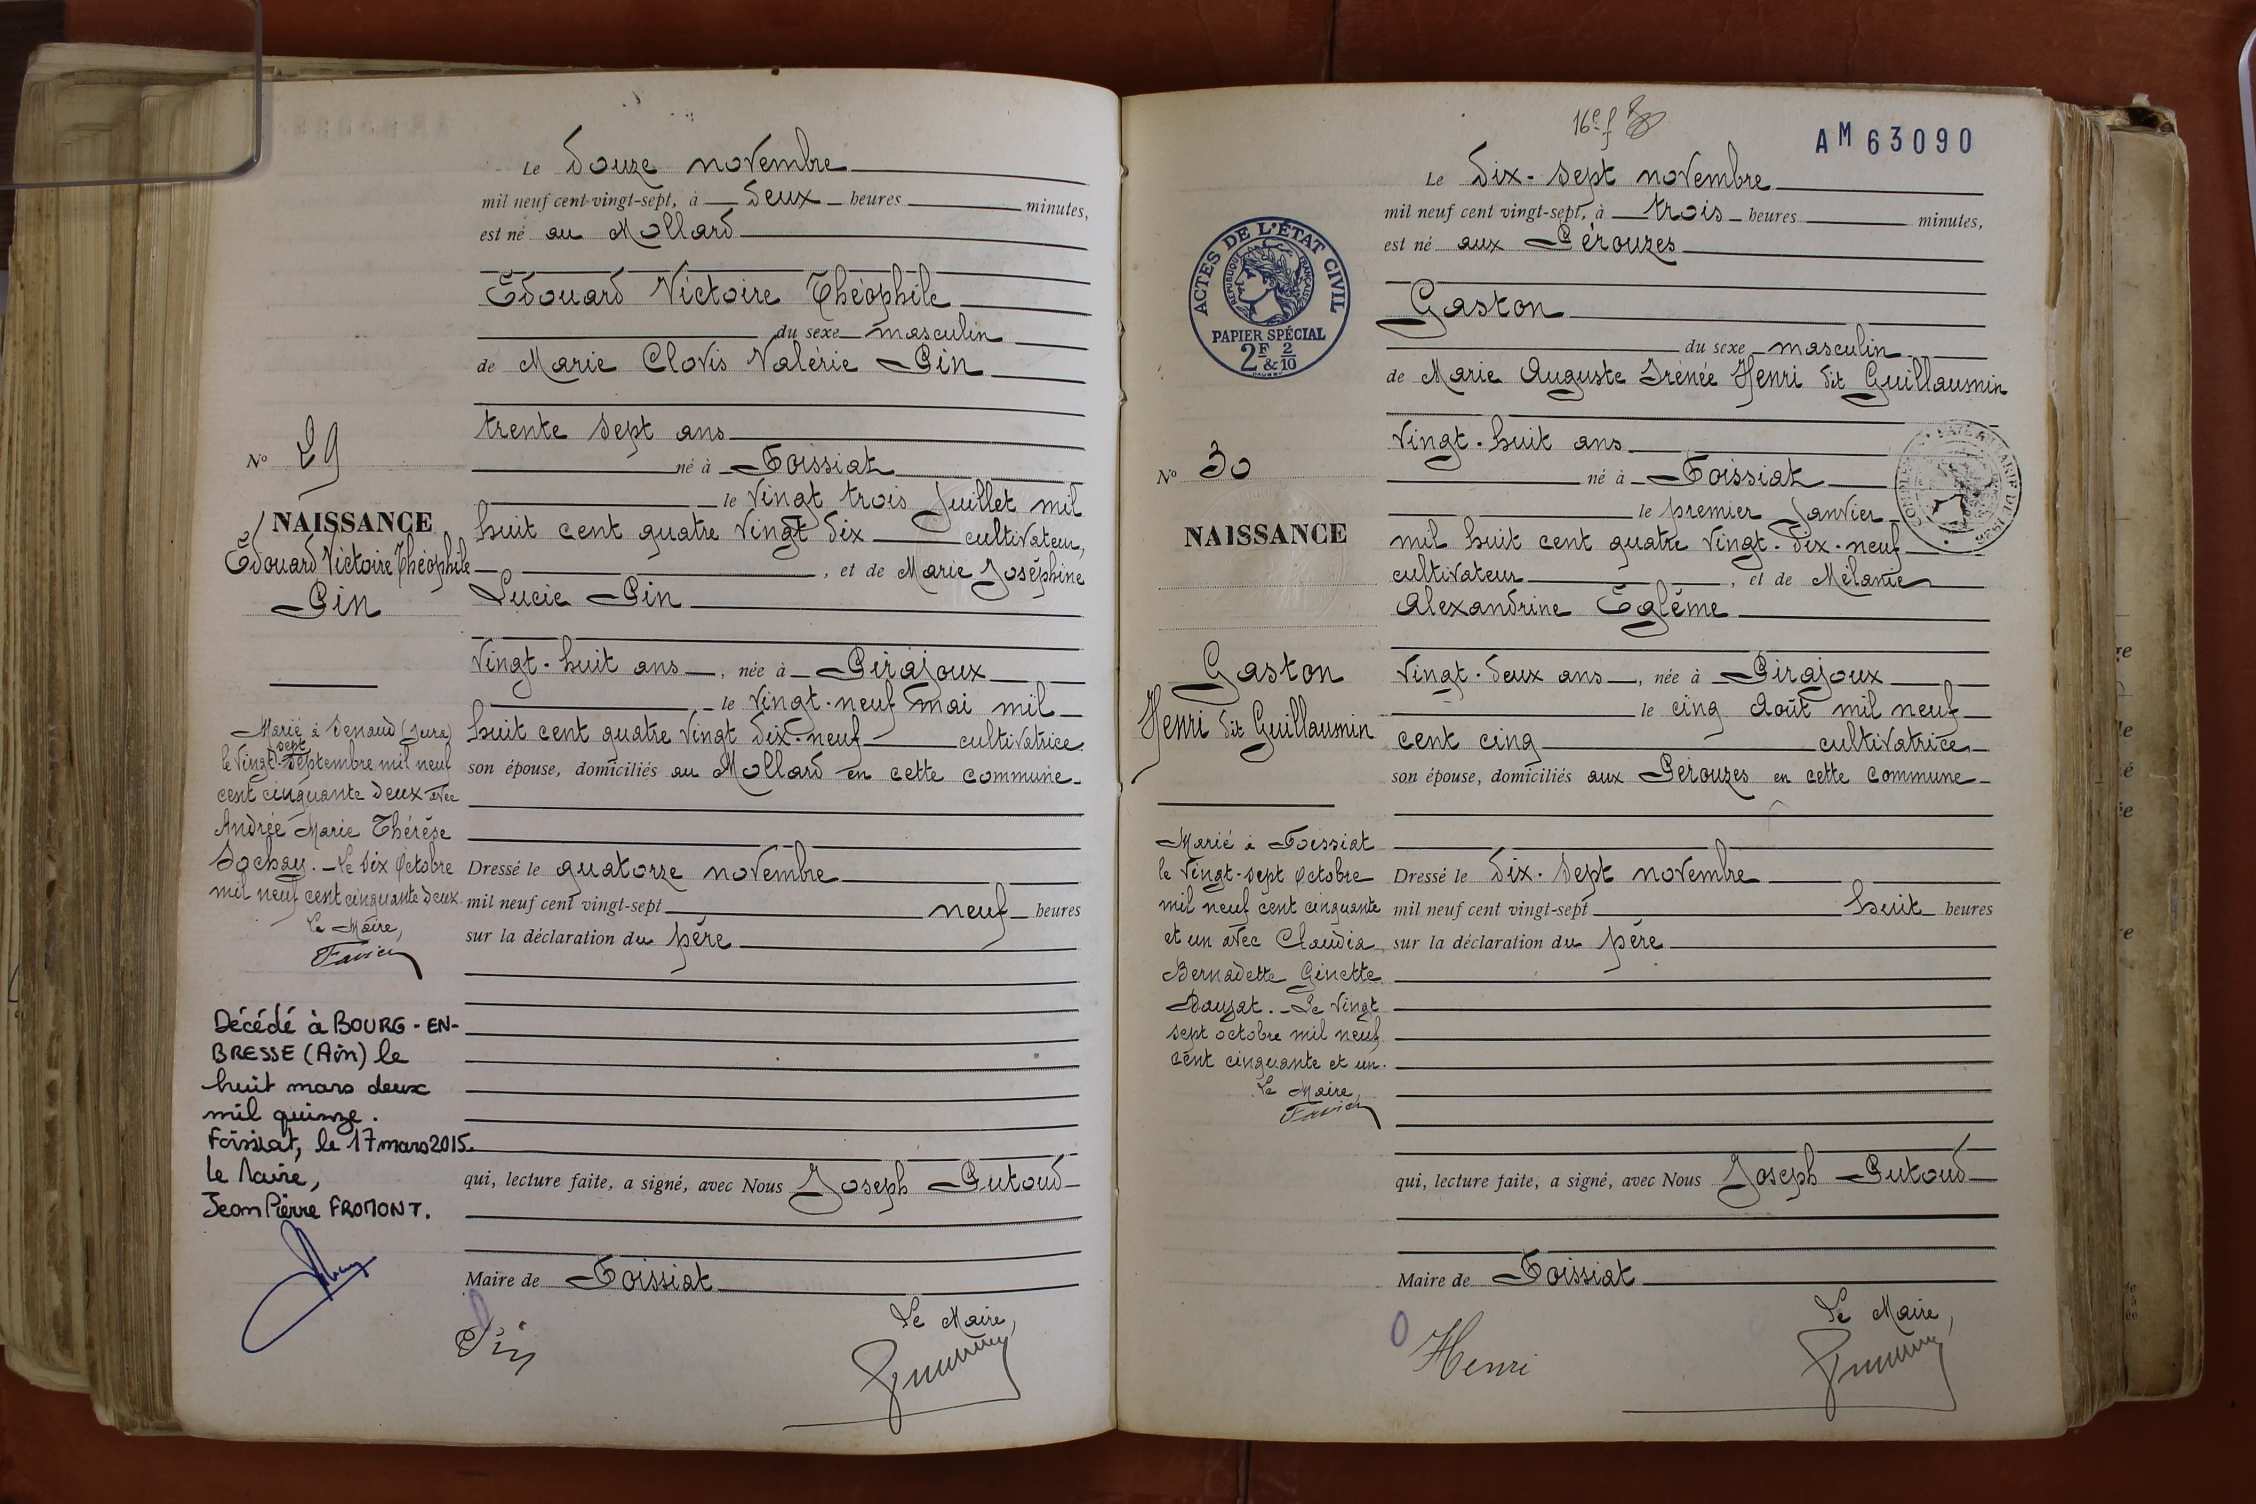 Le douze novembre
mil neuf cent vingt-sept, à deux heures minutes,
est né au Mollard
Edouard Victoire Théophile
du sexe masculin
de Marie Clovis Valérie Pin
trente sept ans
né à Foissiat
le vingt trois Juillet mil
huit cent quatre vingt dix cultivateur,
, et de Marie Joséphine
Lucie Pin
vingt-huit ans, née à Pirajoux
le vingt-neuf mai mil
huit cent quatre vingt dix-neuf cultivatrice
son épouse, domiciliés au Mollard en cette commune
Dressé le quatorze novembre
mil neuf cent vingt-sept neuf heures
sur la déclaration du père
qui, lecture faite, a signé, avec Nous Joseph Putoud
Maire de Foissiat
Le Maire,
Pin
N° 29
NAISSANCE
Edouard Victoire Théophile
Pin
Marié à Senaud (Jura)
le vingt sept septembre mil neuf
cent cinquante deux avec
Andrée Marie Thérèse
Sochay. - Le dix Octobre
mil neuf cent cinquante deux
Le Maire,
Favier
Décédé à BOURG-EN-
BRESSE (Ain) le
huit mars deux
mil quinze.
Foissiat, le 17 mars 2015.
Le Maire,
Jean Pierre FROMONT.
16e f
AM 63090
Le dix-sept novembre
mil neuf cent vingt-sept, à trois heures minutes,
est né aux Pérouzes
Gaston
du sexe masculin
de Marie Auguste Irénée Henri dit Guillaumin
vingt-huit ans
né à Foissiat
le premier Janvier
mil huit cent quatre vingt-dix-neuf
cultivateur, et de Mélanie
Alexandrine Eglême
vingt-deux ans, née à Pirajoux
le cinq Août mil neuf
cent cinq cultivatrice
son épouse, domiciliés aux Pérouzes en cette commune
Dressé le dix-sept novembre
mil neuf cent vingt-sept huit heures
sur la déclaration du père
qui, lecture faite, a signé, avec Nous Joseph Putoud
Maire de Foissiat
Le Maire,
Henri
ACTES DE L'ÉTAT CIVIL
RÉPUBLIQUE FRANÇAISE
PAPIER SPÉCIAL
2F & 2/10
N° 30
NAISSANCE
Gaston
Henri dit Guillaumin
Marié à Foissiat
le vingt-sept Octobre
mil neuf cent cinquante
et un avec Claudia
Bernadette Ginette
Pauzat. - Le vingt
sept octobre mil neuf
cent cinquante et un.
Le Maire,
Favier